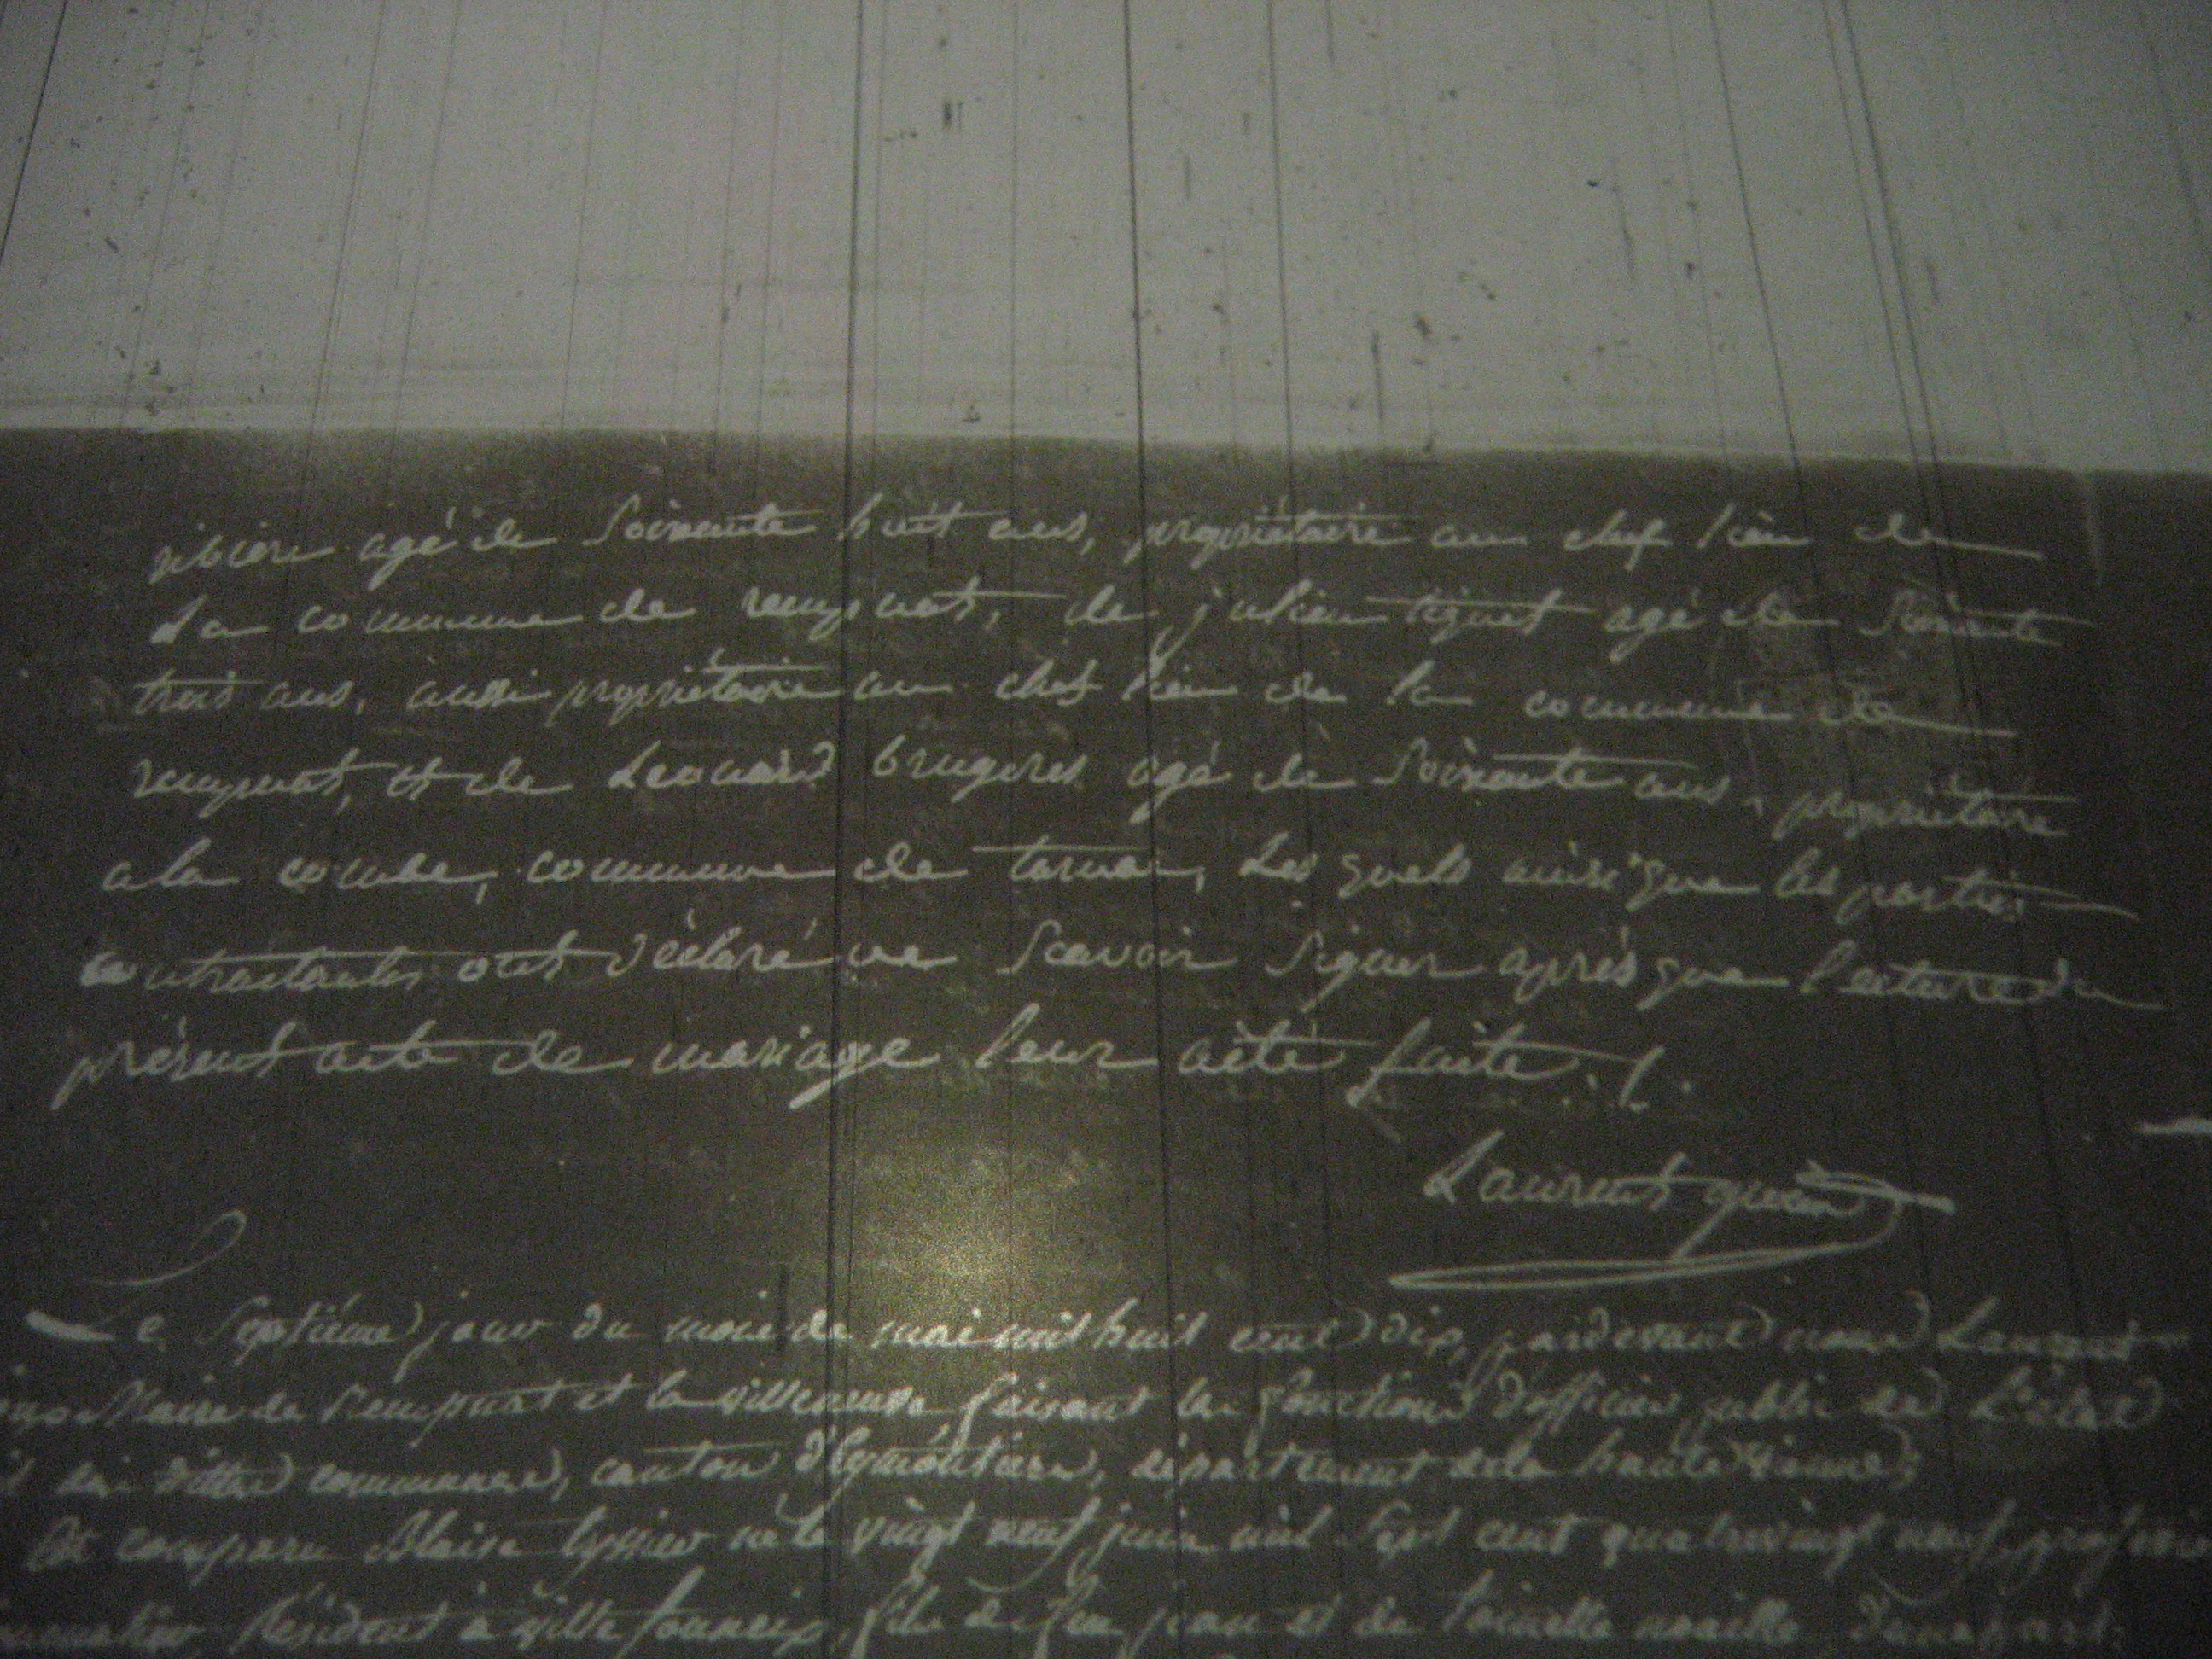 ribiere agé de Soixante huit ans, propriétaire au chef lieu de
La commune de rempnat, de julien tiquet agé de Soixante
trois ans, aussi propriétaire au chef lieu de la commune de
rempnat, et de Leonard brugeres agé de Soixante ans, propriétaire
a la combe, commune de tarnac, Les quels ainsi que les parties
contractantes ont déclaré ne Scavoir Signer après que lecture du
présent acte de mariage leur aété faite ./.
Laurent
Le Septiéme jour du mois de mai mil huit cent dix, pardevant nous Laurent
Maire de Rempnat et la villeneuve faisant les fonctions d'officier public de L'état
dittes communes, canton d'Eymoutiers, département de la haute vienne,
Est comparu Blaise tyssier né le vingt neuf juin mil Sept cent quatrevingt neuf, profession
Résidant à ville fauneix, fils de feu jean et de toinette noaille d'une part,